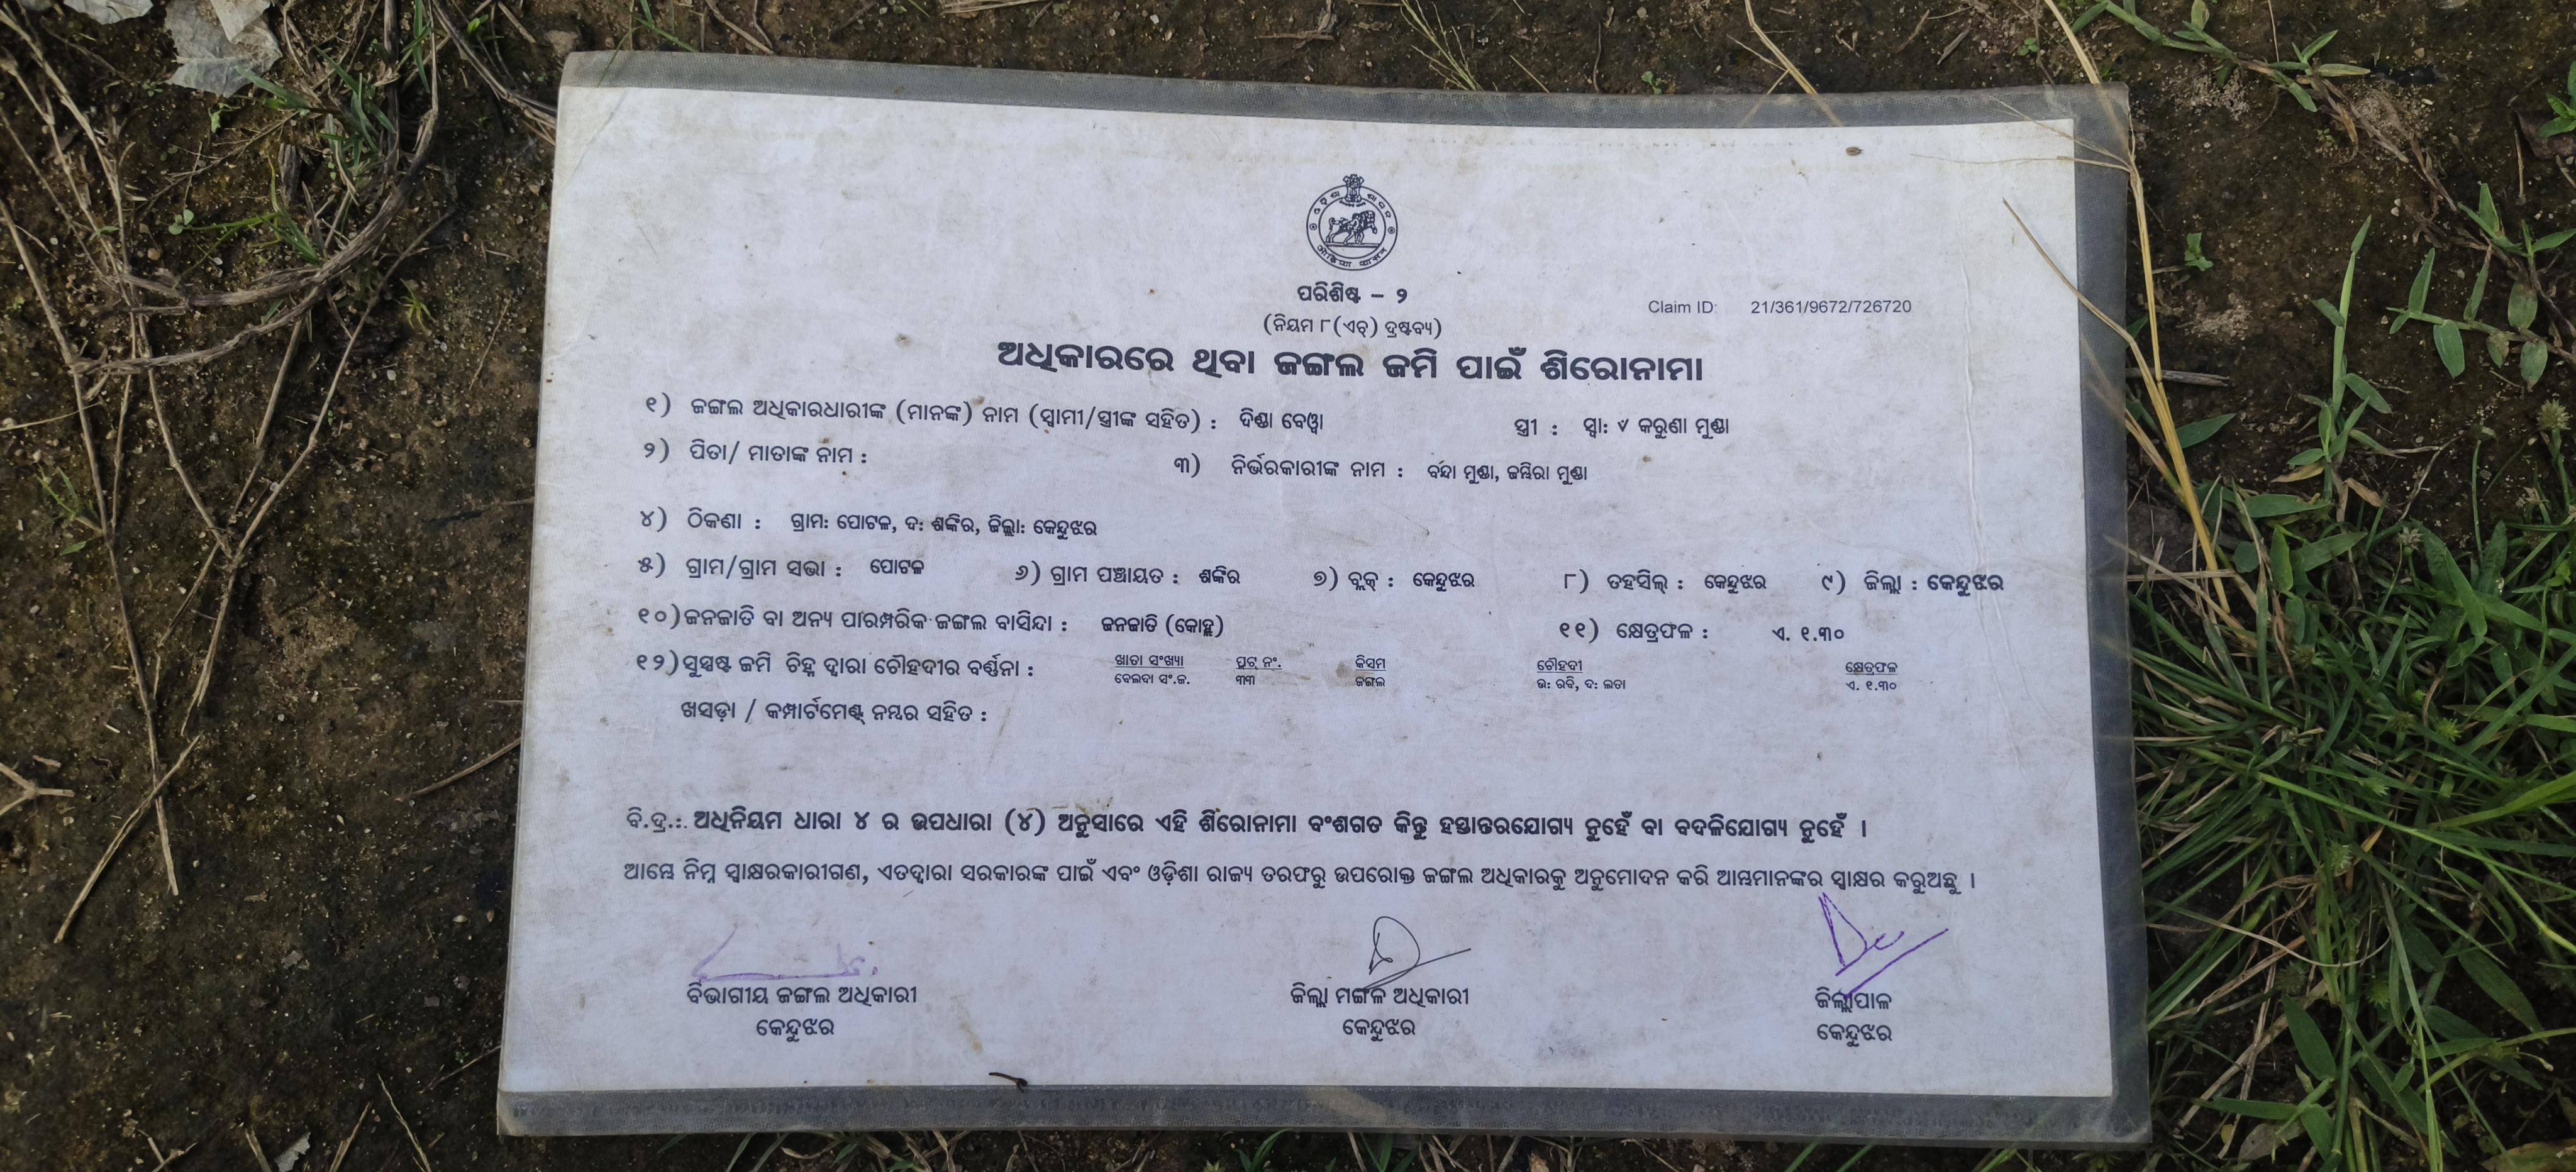 ପରିଶିଷ୍ଟ – ୨
Claim ID: 21/361/9672/726720
(ନିୟମ ୮(ଏଚ୍) ଦ୍ରଷ୍ଟବ୍ୟ)
ଅଧିକାରରେ ଥିବା ଜଙ୍ଗଲ ଜମି ପାଇଁ ଶିରୋନାମା
୧) ଜଙ୍ଗଲ ଅଧିକାରଧାରୀଙ୍କ (ମାନଙ୍କ) ନାମ (ସ୍ୱାମୀ/ସ୍ତ୍ରୀଙ୍କ ସହିତ) : ଦିଣ୍ଡା ବେଓ୍ୱା ସ୍ତ୍ରୀ : ସ୍ୱା: ୰ କରୁଣା ମୁଣ୍ଡା
୨) ପିତା/ ମାତାଙ୍କ ନାମ : ୩) ନିର୍ଭରକାରୀଙ୍କ ନାମ : ବର୍ନ୍ଦା ମୁଣ୍ଡା, ଜମ୍ଭିରା ମୁଣ୍ଡା
୪) ଠିକଣା : ଗ୍ରାମ: ପୋଟଳ, ଦ: ଶଙ୍କିର, ଜିଲ୍ଲା: କେନ୍ଦୁଝର
୫) ଗ୍ରାମ/ଗ୍ରାମ ସଭା : ପୋଟଳ ୬) ଗ୍ରାମ ପଞ୍ଚାୟତ : ଶଙ୍କିର ୭) ବ୍ଲକ୍ : କେନ୍ଦୁଝର ୮) ତହସିଲ୍ : କେନ୍ଦୁଝର ୯) ଜିଲ୍ଲା : କେନ୍ଦୁଝର
୧୦) ଜନଜାତି ବା ଅନ୍ୟ ପାରମ୍ପରିକ ଜଙ୍ଗଲ ବାସିନ୍ଦା : ଜନଜାତି (କୋହ୍ଲ) ୧୧) କ୍ଷେତ୍ରଫଳ : ଏ. ୧.୩୦
୧୨) ସୁସ୍ପଷ୍ଟ ଜମି ଚିହ୍ନ ଦ୍ୱାରା ଚୌହଦୀର ବର୍ଣ୍ଣନା : ଖାତା ସଂଖ୍ୟା ପ୍ଲଟ୍ ନଂ. କିସମ ଚୌହଦୀ କ୍ଷେତ୍ରଫଳ
ବେଲଦା ସଂ.ଜ. ୩୩ ଜଙ୍ଗଲ ଉ: ରବି, ଦ: ଲତା ଏ. ୧.୩୦
ଖସଡ଼ା / କମ୍ପାର୍ଟମେଣ୍ଟ୍ ନମ୍ବର ସହିତ :
ବି.ଦ୍ର.:. ଅଧିନିୟମ ଧାରା ୪ ର ଉପଧାରା (୪) ଅନୁସାରେ ଏହି ଶିରୋନାମା ବଂଶଗତ କିନ୍ତୁ ହସ୍ତାନ୍ତରଯୋଗ୍ୟ ନୁହେଁ ବା ବଦଳିଯୋଗ୍ୟ ନୁହେଁ ।
ଆମ୍ଭେ ନିମ୍ନ ସ୍ୱାକ୍ଷରକାରୀଗଣ, ଏତଦ୍ୱାରା ସରକାରଙ୍କ ପାଇଁ ଏବଂ ଓଡ଼ିଶା ରାଜ୍ୟ ତରଫରୁ ଉପରୋକ୍ତ ଜଙ୍ଗଲ ଅଧିକାରକୁ ଅନୁମୋଦନ କରି ଆମ୍ଭମାନଙ୍କର ସ୍ୱାକ୍ଷର କରୁଅଛୁ ।
ବିଭାଗୀୟ ଜଙ୍ଗଲ ଅଧିକାରୀ ଜିଲ୍ଲା ମଙ୍ଗଳ ଅଧିକାରୀ ଜିଲ୍ଲାପାଳ
କେନ୍ଦୁଝର କେନ୍ଦୁଝର କେନ୍ଦୁଝର